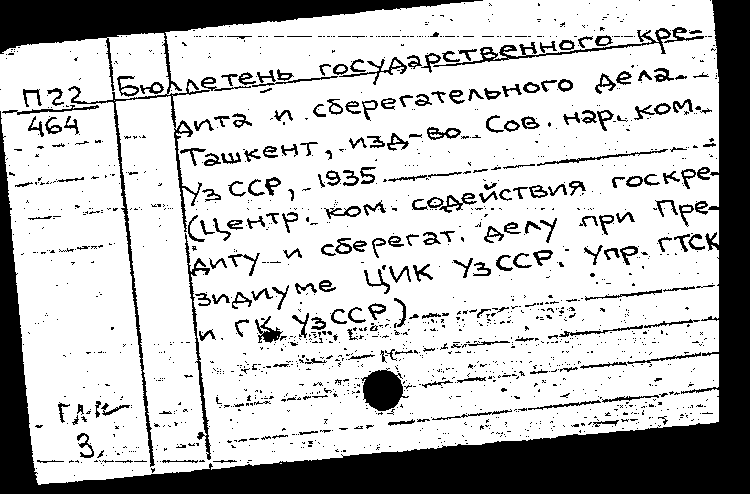 П22
464
Бюллетень государственного кре-
дита и сберегательного дела.
Ташкент, изд-во Сов. нар. ком.
УзССР, 1935
(Центр. ком. содействия госкре-
диту и сберегат. делу при Пре-
зидиуме ЦИК УзССР. Упр. ГТСК
и ГК УзССР).
3.